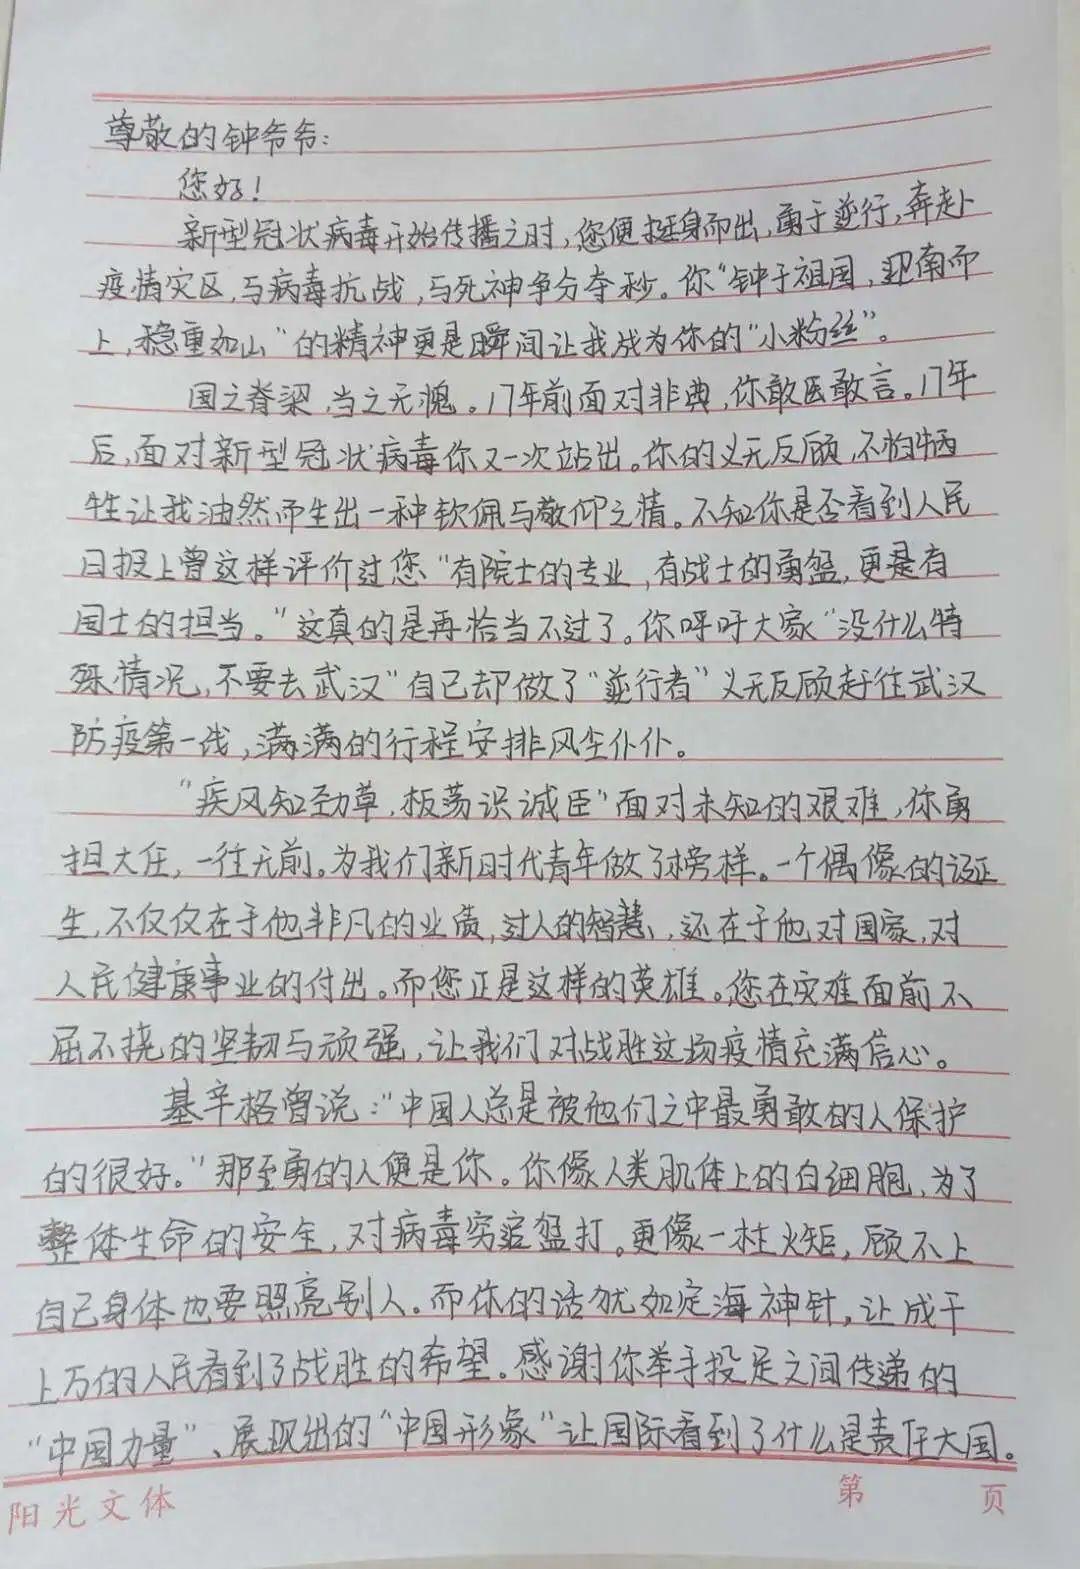 尊敬的钟爷爷：
您好！
新型冠状病毒开始传播之时，您便挺身而出，勇于逆行，奔赴
疫情灾区，与病毒抗战，与死神争分夺秒。你“钟于祖国，迎南而
上，稳重如山”的精神更是瞬间让我成为你的“小粉丝”。
国之脊梁，当之无愧。17年前面对非典，你敢医敢言。17年
后，面对新型冠状病毒你又一次站出。你的义无反顾，不怕牺
牲让我油然而生出一种钦佩与敬仰之情。不知你是否看到人民
日报上曾这样评价过您“有院士的专业，有战士的勇猛，更是有
国士的担当。”这真的是再恰当不过了。你呼吁大家“没什么特
殊情况，不要去武汉”自己却做了“逆行者”义无反顾赶往武汉
防疫第一线，满满的行程安排风尘仆仆。
“疾风知劲草，板荡识诚臣”面对未知的艰难，你勇
担大任，一往无前。为我们新时代青年做了榜样。一个偶像的诞
生，不仅仅在于他非凡的业绩，过人的智慧，还在于他对国家，对
人民健康事业的付出。而您正是这样的英雄。您在灾难面前不
屈不挠的坚韧与顽强，让我们对战胜这场疫情充满信心。
基辛格曾说：“中国人总是被他们之中最勇敢的人保护
的很好。”那至勇的人便是你。你像人类肌体上的白细胞，为了
整体生命的安全，对病毒穷追猛打。更像一柱火炬，顾不上
自己身体也要照亮别人。而你的话犹如定海神针，让成千
上万的人民看到了战胜的希望。感谢你举手投足之间传递的
“中国力量”、展现出的“中国形象”让国际看到了什么是责任大国。
阳光文体
第 页